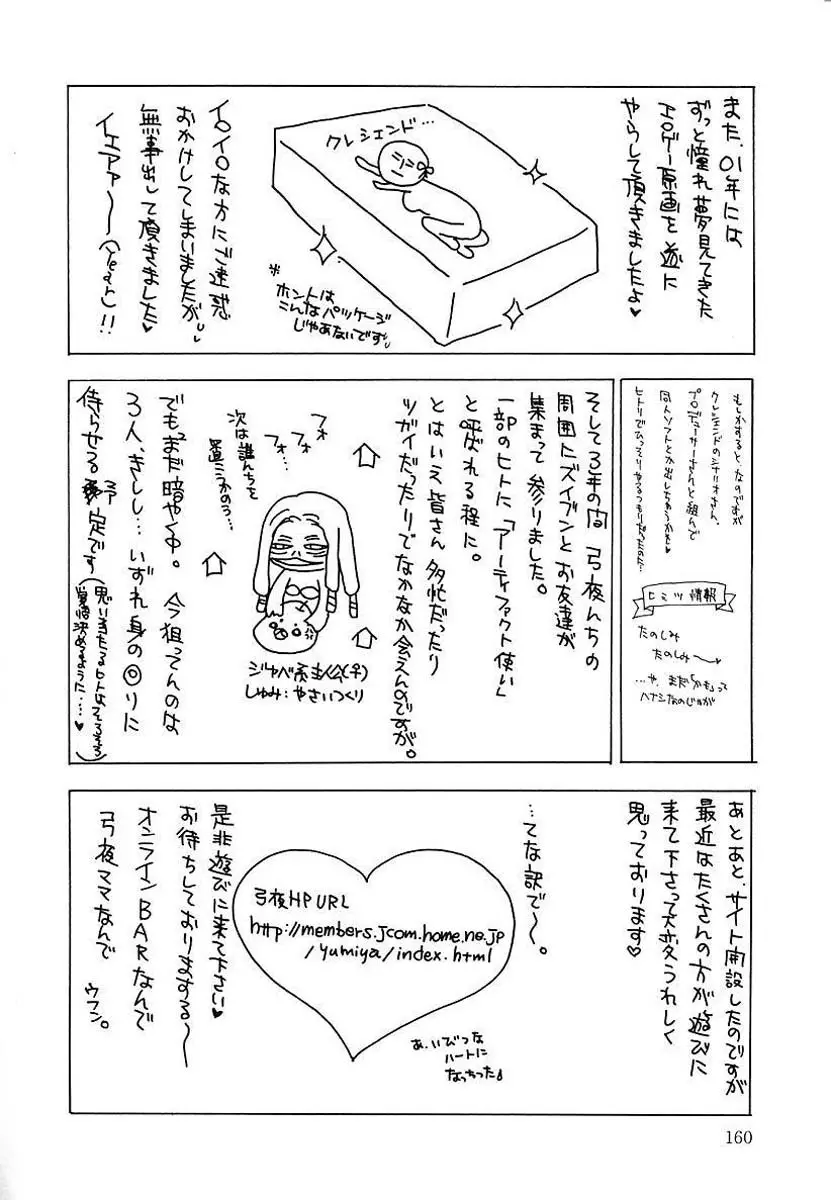 また、01年には
ずっと憧れ夢見てきた
エロゲー原画を遂に
やらして頂きましたよ♥
クレシェンド…
※
ホントは
こんなパッケージ
じゃあないです。
イロイロな方にご迷惑
おかけしてしまいましたが、
無事出して頂きました♥
イエアァ〜〜(Yeah)!!
もしかすると、なのですが
クレシェンドのシナリオさん、
プロデューサーさんと組んで
同人ソフトとか出しちゃうかも♥
ヒトリでひっそりやるつもりだったのに…
ヒミツ情報
たのしみ
たのしみ〜
…や、まだ「かも」って
ハナシなのじゃが
そして3年の間 弓夜んちの
周囲にズイブンとお友達が
集まって参りました。
一部のヒトに「アーティファクト使い」
と呼ばれる程に。
とはいえ皆さん多忙だったり
ツガイだったりでなかなか会えんのですが。
フォ…
フォ…
次は誰んちを
置こうかのう…
ジャバ系主人公(♀)
しゅみ:やさいつくり
でもまだ暗やく中。今狙ってんのは
3人、きしし…いずれ身の回りに
侍らせる予定です
(思い当たるヒトはそろそろ
覚悟決めるように…♥)
あとあと、サイト開設したのですが
最近はたくさんの方が遊びに
来て下さって大変うれしく
思っております♥
…てな訳で〜。
弓夜HP URL
http://members.jcom.home.ne.jp
/yumiya/index.html
あ、いびつな
ハートに
なっちった♪
是非遊びに来て下さい♥
お待ちしておりまする〜
オンラインBARなんで
弓夜ママなんで
ウフン。
160